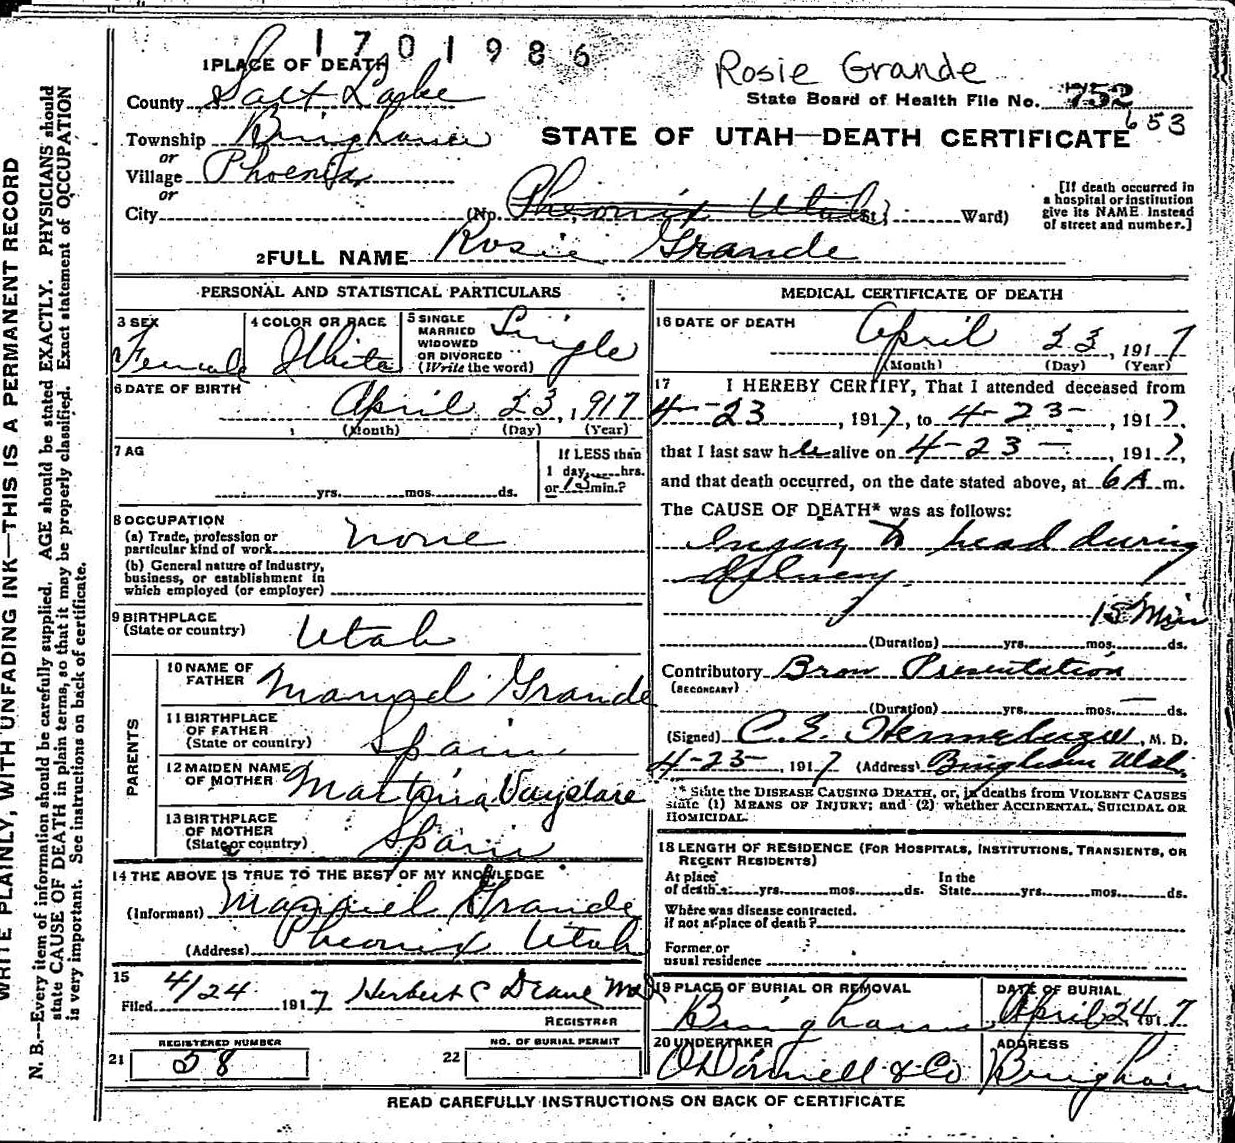 1701986
Rosie Grande
1 PLACE OF DEATH
County Salt Lake
State Board of Health File No. 752
653
Township Bingham
STATE OF UTAH—DEATH CERTIFICATE
or
Village Phoenix
or
City (No. Pheonix Utah St; Ward)
[If death occurred in
a hospital or institution
give its NAME instead
of street and number.]
2 FULL NAME Rosie Grande
PERSONAL AND STATISTICAL PARTICULARS
3 SEX
Female
4 COLOR OR RACE
White
5 SINGLE
MARRIED
WIDOWED
OR DIVORCED
(Write the word)
Single
6 DATE OF BIRTH
April 23, 1917
(Month) (Day) (Year)
7 AG
yrs. mos. ds.
If LESS than
1 day, hrs.
or 15 min.?
8 OCCUPATION
(a) Trade, profession or
particular kind of work None
(b) General nature of industry,
business, or establishment in
which employed (or employer)
9 BIRTHPLACE
(State or country) Utah
PARENTS
10 NAME OF
FATHER Manuel Grande
11 BIRTHPLACE
OF FATHER
(State or country) Spain
12 MAIDEN NAME
OF MOTHER
13 BIRTHPLACE
OF MOTHER
(State or country) Spain
14 THE ABOVE IS TRUE TO THE BEST OF MY KNOWLEDGE
(Informant) Grande
(Address) Pheonix Utah
15
Filed 4/24 1917 Herbert C Deane MD
REGISTRAR
REGISTERED NUMBER
21 58
NO. OF BURIAL PERMIT
22
MEDICAL CERTIFICATE OF DEATH
16 DATE OF DEATH
April 23, 1917
(Month) (Day) (Year)
17 I HEREBY CERTIFY, That I attended deceased from
4-23, 1917, to 4-23-, 1917,
that I last saw her alive on 4-23-, 1917,
and that death occurred, on the date stated above, at 6 A m.
The CAUSE OF DEATH* was as follows:
Injury to head during
delivery.
15 Min
(Duration) yrs. mos. ds.
Contributory Brow Presentation
(SECONDARY)
(Duration) yrs. mos. ds.
(Signed) C. E. M. D.
4-23-, 1917 (Address) Bingham Utah.
* State the DISEASE CAUSING DEATH, or, in deaths from VIOLENT CAUSES
state (1) MEANS OF INJURY; and (2) whether ACCIDENTAL, SUICIDAL OR
HOMICIDAL.
18 LENGTH OF RESIDENCE (FOR HOSPITALS, INSTITUTIONS, TRANSIENTS, OR
RECENT RESIDENTS)
At place In the
of death yrs. mos. ds. State yrs. mos. ds.
Where was disease contracted.
if not at place of death?
Former or
usual residence
19 PLACE OF BURIAL OR REMOVAL
Bingham
DATE OF BURIAL
April 24, 1917
20 UNDERTAKER
O'Donnell & Co
ADDRESS
Bingham
READ CAREFULLY INSTRUCTIONS ON BACK OF CERTIFICATE
WRITE PLAINLY, WITH UNFADING INK—THIS IS A PERMANENT RECORD
N. B.—Every item of information should be carefully supplied. AGE should be stated EXACTLY. PHYSICIANS should
state CAUSE OF DEATH in plain terms, so that it may be properly classified. Exact statement of OCCUPATION
is very important. See instructions on back of certificate.